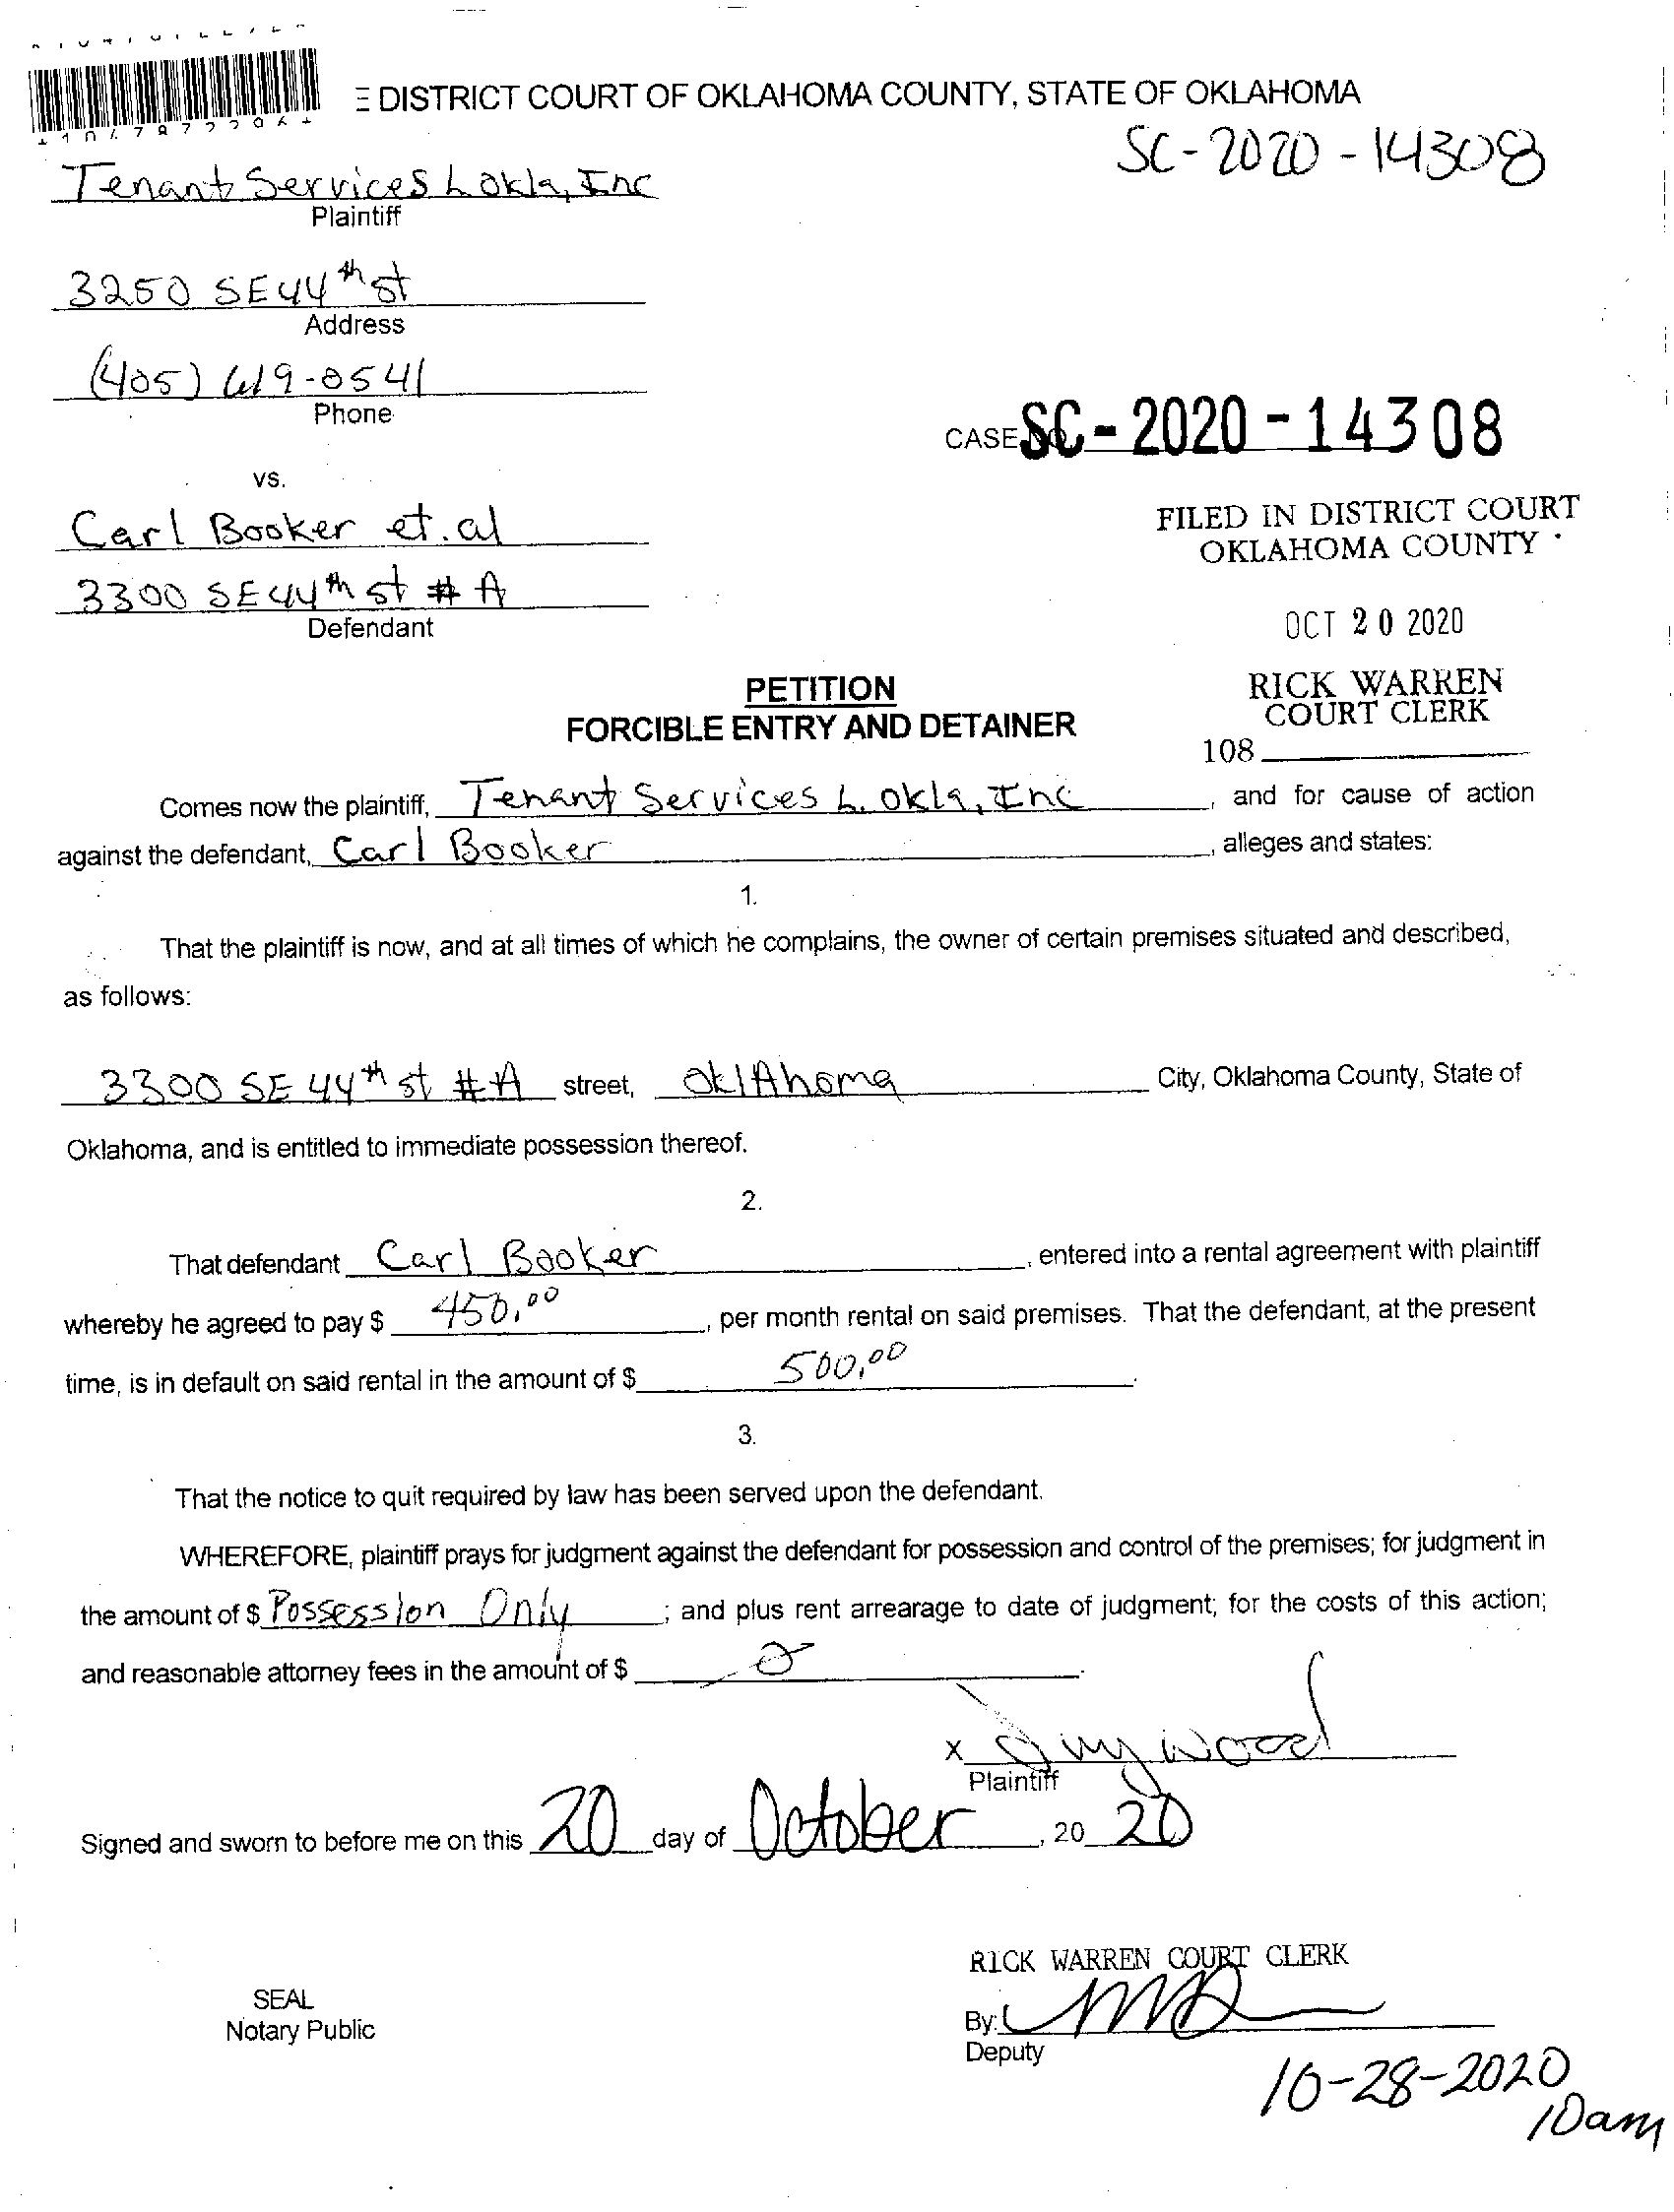 E DISTRICT COURT OF OKLAHOMA COUNTY, STATE OF OKLAHOMA
SC-2020-14308
Tenant Services L Okla, Inc
Plaintiff
3250 SE 44th st
Address
(405) 619-0541
Phone
CASE NO. SC-2020-14308
vs.
Carl Booker et.al
3300 SE 44th st # A
Defendant
FILED IN DISTRICT COURT
OKLAHOMA COUNTY
OCT 20 2020
RICK WARREN
COURT CLERK
108
PETITION
FORCIBLE ENTRY AND DETAINER
Comes now the plaintiff, Tenant Services L. Okla, Inc, and for cause of action
against the defendant, Carl Booker, alleges and states:
1.
That the plaintiff is now, and at all times of which he complains, the owner of certain premises situated and described,
as follows:
3300 SE 44th st #A street, OklAhoma City, Oklahoma County, State of
Oklahoma, and is entitled to immediate possession thereof.
2.
That defendant Carl Booker, entered into a rental agreement with plaintiff
whereby he agreed to pay $ 450.00, per month rental on said premises. That the defendant, at the present
time, is in default on said rental in the amount of $ 500.00.
3.
That the notice to quit required by law has been served upon the defendant.
WHEREFORE, plaintiff prays for judgment against the defendant for possession and control of the premises; for judgment in
the amount of $ Possession Only; and plus rent arrearage to date of judgment; for the costs of this action;
and reasonable attorney fees in the amount of $ 0.
X wood
Plaintiff
Signed and sworn to before me on this 20 day of October, 20 20
RICK WARREN COURT CLERK
SEAL
Notary Public
By:
Deputy
10-28-2020
10am